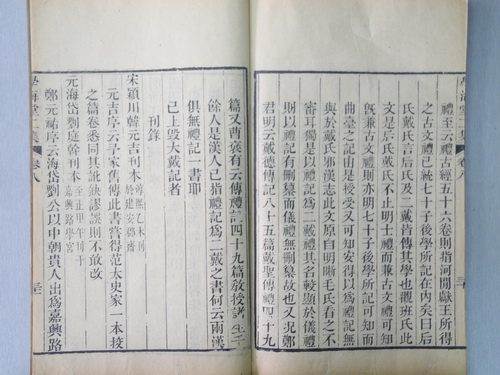 禮王云禮古經五十六卷則指河間獻王所得
之古文禮已統七十子後學所記在內矣曰后
氏戴氏言后氏及二戴皆傳其學也觀班氏此
戴氏不止明士禮而兼古文禮可知
旣兼古文禮則亦明七十子後學所記可知而
曲臺之記由是授受又可知安得以爲禮記無
與於戴氏邪漢志此文原自明晰毛氏看之不
審耳獨是以禮記爲禮其名較顯於儀禮
則以禮記有刪纂而儀禮無刪纂故也又況鄭
君明云戴德傳記八十五篇戴聖傳禮四十九
篇又曹褒有云傳禮記四十九篇敎授諸生千
餘人是漢人已指禮記爲二戴之書何云兩漢
俱無禮記一書耶
已上毀大戴記者
刊錄
宋潁川韓元吉刊本
淳熙乙未刊
於建安郡齋
元吉序云予家舊傳此書嘗得范太史家一本挍
之篇卷悉同其訛缺謬誤則不敢改
元海岱劉庭幹刊本
至正甲午刊于
嘉興路學宮
鄭元祐序云海岱劉公以中朝貴人出爲嘉興路
學海堂二集
卷八